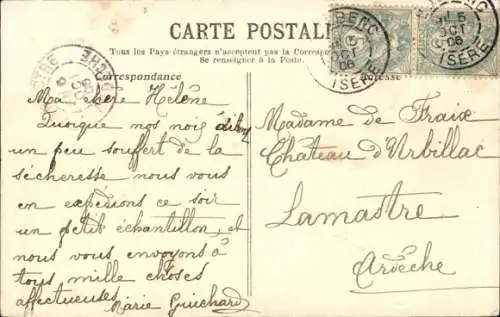 CARTE POSTALE
Tous les Pays étrangers n'acceptent pas la Corresp
Se renseigner à la Poste.
Correspondance
Adresse
BENC
5
OCT
06
ISERE
BENC
5
OCT
06
ISERE
ARDECHE
Ma chère Hélène
Quoique nos noix
un peu souffert de la
sécheresse nous vous
en expésions ce soir
un petit échantillon, et
nous vous envoyons à
tous mille choses
affectueuses
Marie Guichard
Madame de Fraix
Château d'Urbillac
Lamastre
Ardèche